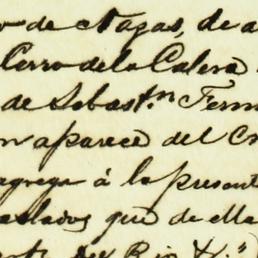 de Nagas, de a
Cerro de la Calera
de Sebast.n Fern
n aparece del C
agrega á la present
aslados que de ella
del Rio